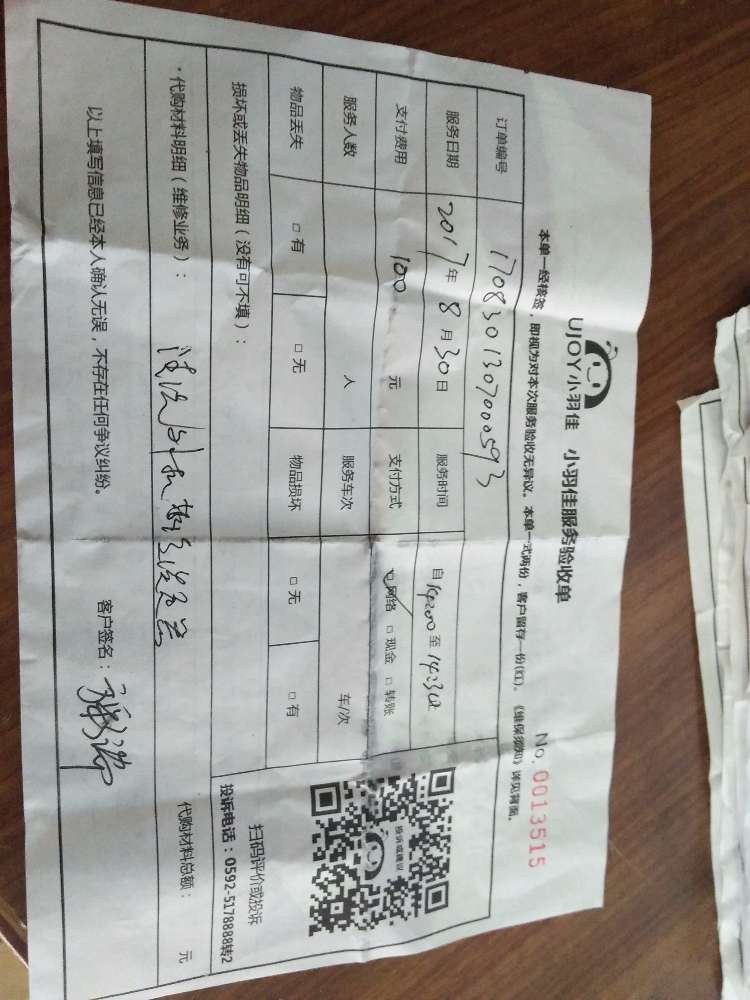 UJOY小羽佳 小羽佳服务验收单
No. 0013515
本单一经核签，即视为对本次服务验收无异议。本单一式两份，客户留存一份(红)。《维保须知》详见背面。
订单编号 1708301307000593
服务日期 2017年 8月30日 服务时间 自 至14:30
支付费用 100 元 支付方式 □网络 □现金 □转账
服务人数 人 服务车次 车/次
物品丢失 □有 □无 物品损坏 □无 □有
损坏或丢失物品明细（没有可不填）：
投诉或建议
扫码评价或投诉
投诉电话：0592-5178888转2
·代购材料明细（维修业务）： 代购材料总额： 元
以上填写信息已经本人确认无误，不存在任何争议纠纷。 客户签名：